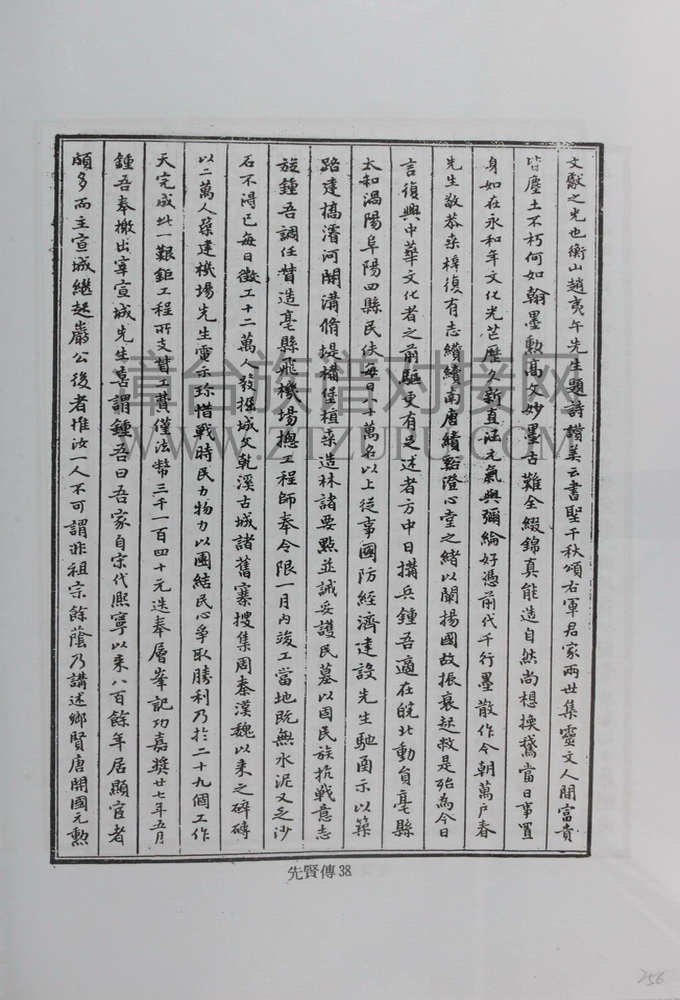 文獻之光也衡山趙夷午先生題詩讚美云書聖千秋頌右軍君家兩世集靈文人間富貴
皆塵土不朽何如翰墨勲高文妙墨古難全綴錦真能造自然尚想換鵞當日事置
身如在永和年文化光芒歷久新直涵元氣與彌綸好憑前代千行墨散作今朝萬戶春
先生敬恭桑梓復有志纘續南唐績谿澄心堂之緒以闡揚國故振衰起救是殆為今日
言復興中華文化者之前驅更有足述者方中日搆兵鍾吾適在皖北動員亳縣
太和渦陽阜陽四縣民伕每日八十萬名以上從事國防經濟建設先生馳函示以築
路建橋濬河開溝脩堤構堡植桑造林諸要點並誡妥護民墓以國民族抗戰意志
旋鍾吾調任督造亳縣飛機場總工程師奉令限一月內竣工當地既無水泥又乏沙
石不得已每日徵工十二萬人發掘城父乾溪古城諸舊寨搜集周秦漢魏以來之碎磚
以二萬人築建機場先生電示珍惜戰時民力物力以團結民心爭取勝利乃於二十九個工作
天完成此一艱鉅工程所支督工費僅法幣三千一百四十元迭奉層峯記功嘉獎廿七年五月
鍾吾奉檄出宰宣城先生喜謂鍾吾曰吾家自宋代熙寧以來八百餘年居顯宦者
頗多而主宣城繼起巖公後者惟汝一人不可謂非祖宗餘蔭乃講述鄉賢唐開國元勲
先賢傳38
漳台族谱对接网
WWW.ZTZUPU.COM
256